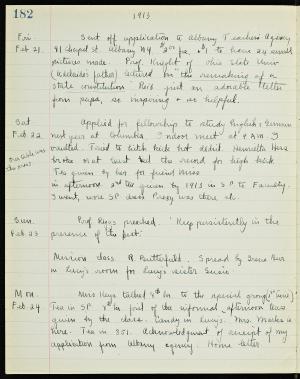 182
1913
Fri
Feb 21.
Sent off application to Albany Teachers Agency
81 Chapel st. Albany N.Y. $2.00 for + $1 to have 24 small
pictures made. Prof. Knight of Ohio State Univ
(Adelaide's father) talked on "the remaking of a
state constitution. Rec'd just an adorable letter
from papa, so inspiring + so helpful.
Sat
Feb 22.
Applied for fellowship to study English + German
next year at Columbia. Indoor meet at 9 A.M. I
vaulted. Tried to hitch kick but didn't. Henrietta
broke mat and the record for high kick
Tea given by her for friend
in afternoon 2nd tea given by 1913 in S.P. to Faculty.
I went, wore S.P. dress Prexy was there
Sun.
Feb 23
Prof. preached. "Keep persistently in the
presence of the best."
Mission class. Butterfield. Spread by
in Lucy's room for Lucy's sister Susie.
Mon.
Feb. 24
Mrs talked 8th hr. to the special group (1st time)
Tea in S.P. 8th hr. first of the informal afternoon teas
given by the class. Candy in Lucy's. Mrs.
here. Tea in 351. Acknowledgment of receipt of my
application from Albany agency. Home letter.